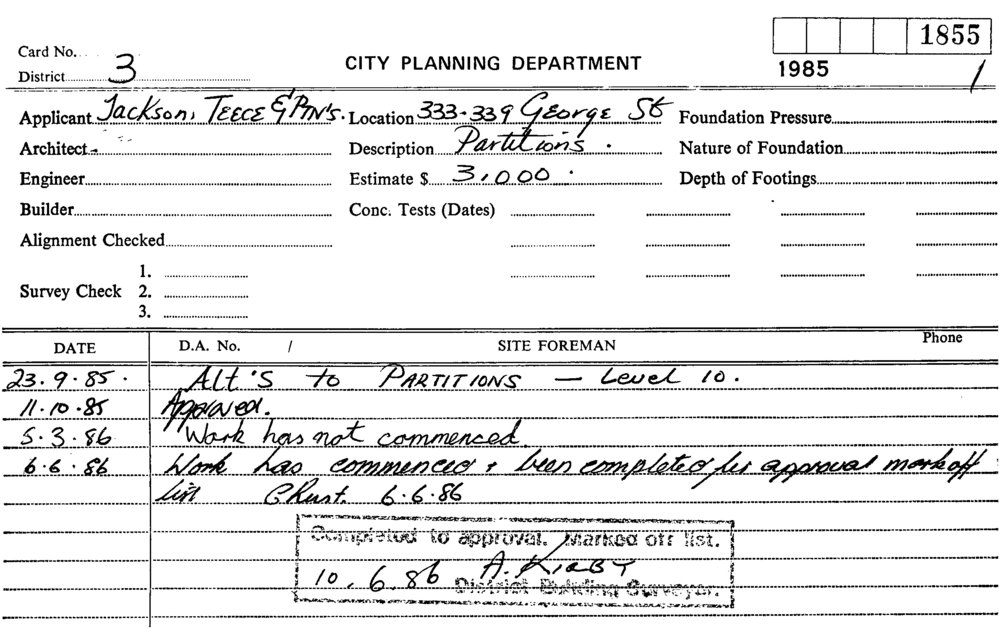 1855
Card No.
District 3
CITY PLANNING DEPARTMENT
1985
1
Applicant Jackson, TEECE & PTN'S. Location 333-339 George St Foundation Pressure
Architect Description Partitions. Nature of Foundation
Engineer Estimate $ 3,000. Depth of Footings
Builder Conc. Tests (Dates)
Alignment Checked
1.
Survey Check 2.
3.
DATE D.A. No. / SITE FOREMAN Phone
23.9.85. Alt's to PARTITIONS — Level 10.
11.10.85 Approved.
5.3.86 Work has not commenced
6.6.86 Work has commenced + been completed per approval mark off
list 6.6.86
Completed to approval. Marked off list.
10.6.86 A. KIRBY
District Building Surveyor.